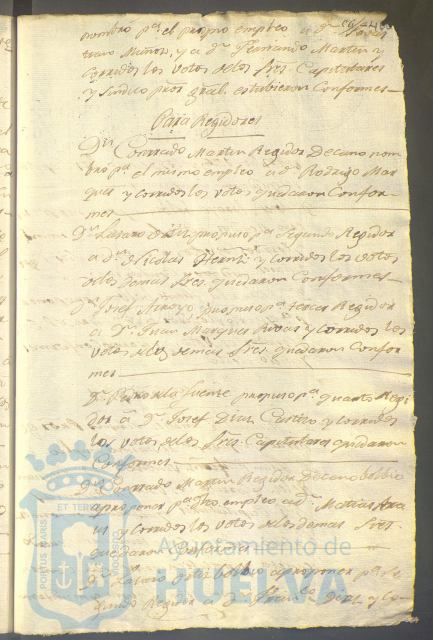 nombró pª. el propio empleo a Dn.
Muños, y a Dn. Fernando Martin y
Corridos los votos de los Sres. Capitulares
y Sindico procor. gral. estubieron Conformes
Para Regidores
Dn. Conrrado Martin Regidor Decano nom
bró pª. el mismo empleo a Dn. Rodrigo Mar
ques y corridos los votos quedaron Confor
mes
Dn. Lazaro propuso pª. Segundo Regidor
a Dn. Nicolas y corridos los votos
de los demas Sres. quedaron Conformes
Dn. Josef Arroyo propuso pª. tercer Regidor
a Dn. Juan Marques Rivas y corridos los
votos de los demas Sres. quedaron Confor
mes
Dn. Pedro de la Fuente propuso pª. quarto Regi
dor a Dn. Josef Diaz y corridos
los votos de los Sres. Capitulares quedaron
Conformes
Dn. Conrrado Martin Regidor Decano bolbio
a proponer pª. dho empleo a Dn. Matias
y corridos los votos de los demas Sres
quedaron Conformes
Dn. Lazaro bolbio a proponer pª. Se
gundo Regidor a Dn. y Co
PORTUS MARIS
ET TERRAE
CUSTODIA
Ayuntamiento de
HUELVA